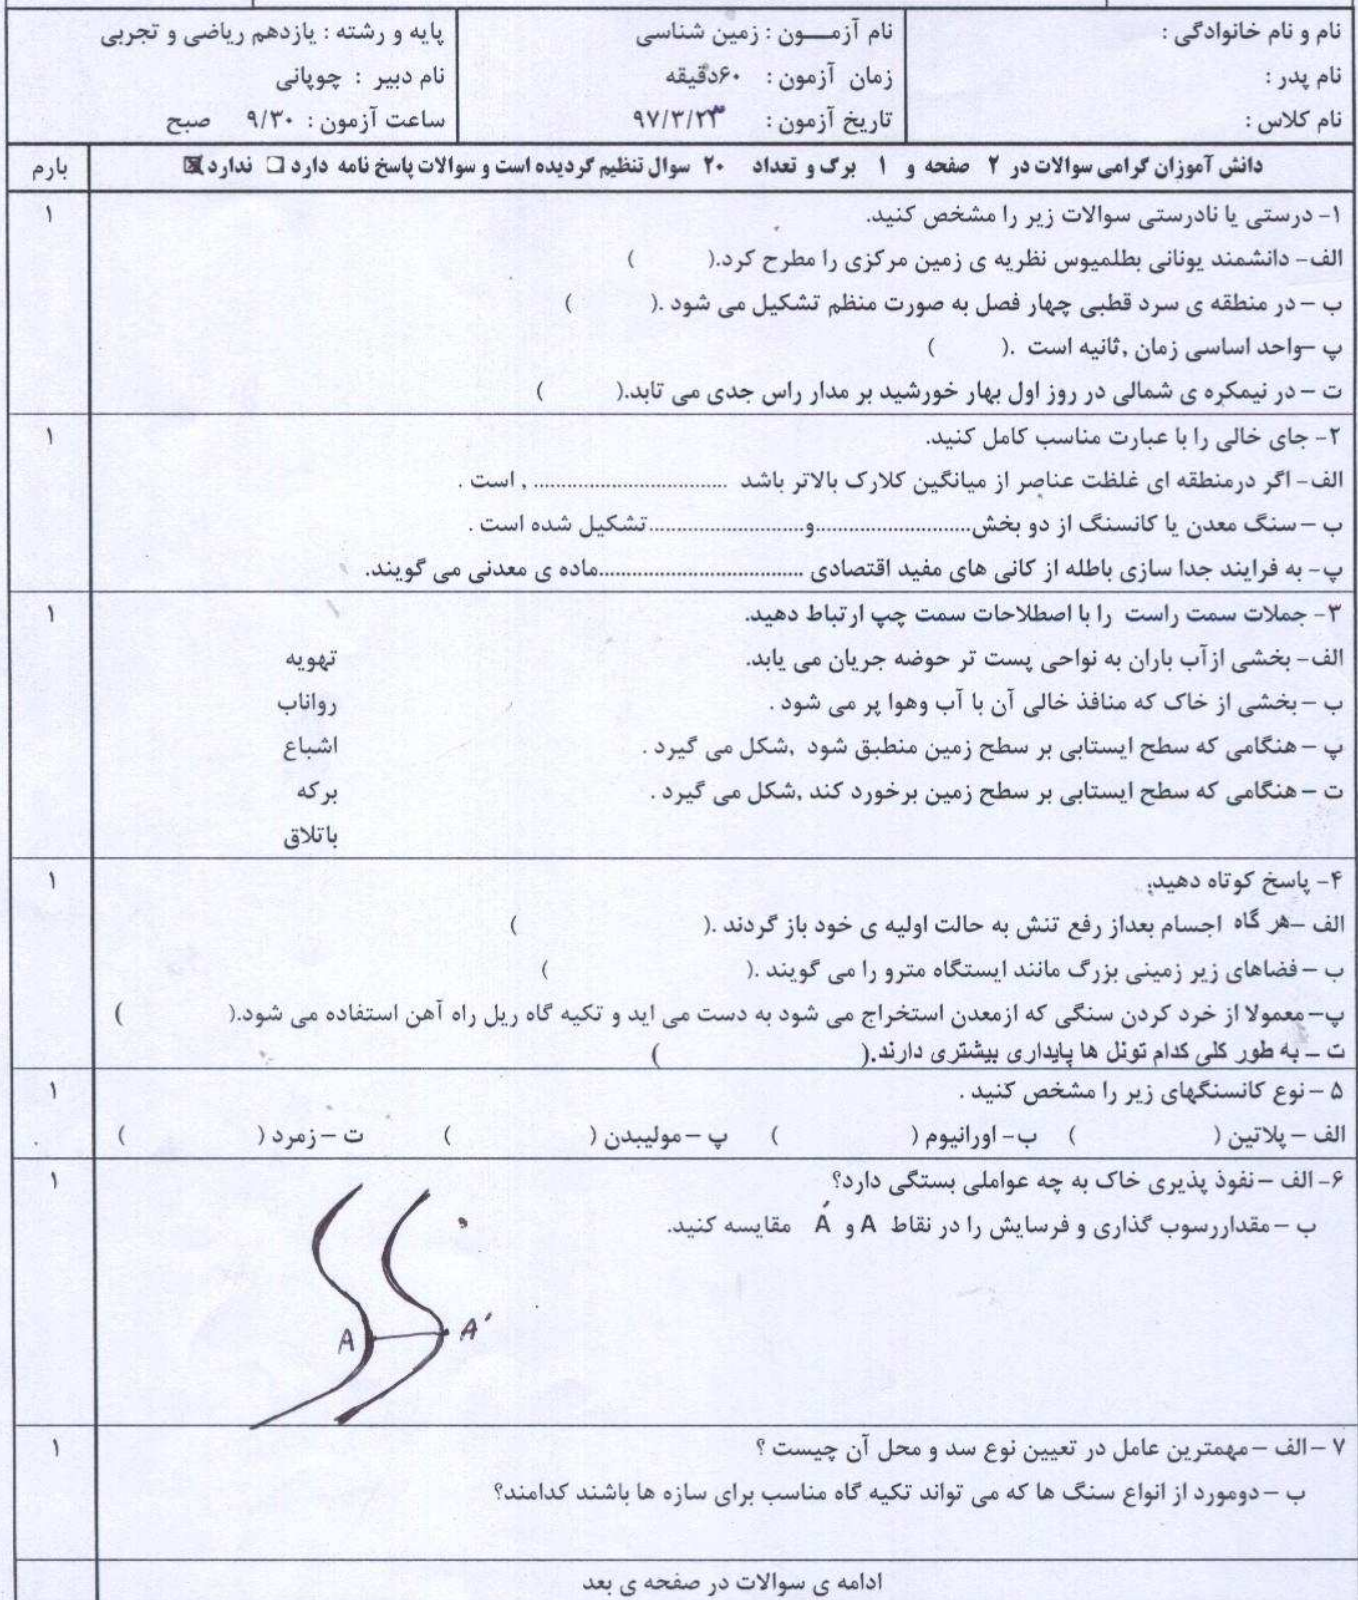 نام و نام خانوادگی :
نام پدر :
نام کلاس :
نام آزمـــون : زمین شناسی
زمان آزمون : ۶۰دقیقه
تاریخ آزمون : ۹۷/۳/۲۳
پایه و رشته : یازدهم ریاضی و تجربی
نام دبیر : چوپانی
ساعت آزمون : ۹/۳۰ صبح
دانش آموزان گرامی سوالات در ۲ صفحه و ۱ برگ و تعداد ۲۰ سوال تنظیم گردیده است و سوالات پاسخ نامه دارد ☐ ندارد ☒
بارم
۱- درستی یا نادرستی سوالات زیر را مشخص کنید.
۱
الف- دانشمند یونانی بطلمیوس نظریه ی زمین مرکزی را مطرح کرد.( )
ب – در منطقه ی سرد قطبی چهار فصل به صورت منظم تشکیل می شود .( )
پ –واحد اساسی زمان ,ثانیه است .( )
ت – در نیمکره ی شمالی در روز اول بهار خورشید بر مدار راس جدی می تابد.( )
۲- جای خالی را با عبارت مناسب کامل کنید.
۱
الف- اگر درمنطقه ای غلظت عناصر از میانگین کلارک بالاتر باشد ................................ , است .
ب – سنگ معدن یا کانسنگ از دو بخش..........................و..........................تشکیل شده است .
پ- به فرایند جدا سازی باطله از کانی های مفید اقتصادی ..................................ماده ی معدنی می گویند.
۳- جملات سمت راست را با اصطلاحات سمت چپ ارتباط دهید.
۱
الف- بخشی ازآب باران به نواحی پست تر حوضه جریان می یابد. تهویه
ب – بخشی از خاک که منافذ خالی آن با آب وهوا پر می شود . رواناب
پ – هنگامی که سطح ایستابی بر سطح زمین منطبق شود ,شکل می گیرد . اشباع
ت – هنگامی که سطح ایستابی بر سطح زمین برخورد کند ,شکل می گیرد . برکه
باتلاق
۴- پاسخ کوتاه دهید.
۱
الف –هر گاه اجسام بعداز رفع تنش به حالت اولیه ی خود باز گردند .( )
ب – فضاهای زیر زمینی بزرگ مانند ایستگاه مترو را می گویند .( )
پ– معمولا از خرد کردن سنگی که ازمعدن استخراج می شود به دست می اید و تکیه گاه ریل راه آهن استفاده می شود.( )
ت – به طور کلی کدام تونل ها پایداری بیشتری دارند.( )
۵ – نوع کانسنگهای زیر را مشخص کنید .
۱
الف – پلاتین ( ) ب- اورانیوم ( ) پ – مولیبدن ( ) ت – زمرد ( )
۶- الف – نفوذ پذیری خاک به چه عواملی بستگی دارد؟
۱
ب – مقداررسوب گذاری و فرسایش را در نقاط A و Á مقایسه کنید.
A A'
۷ – الف – مهمترین عامل در تعیین نوع سد و محل آن چیست ؟
۱
ب – دومورد از انواع سنگ ها که می تواند تکیه گاه مناسب برای سازه ها باشند کدامند؟
ادامه ی سوالات در صفحه ی بعد